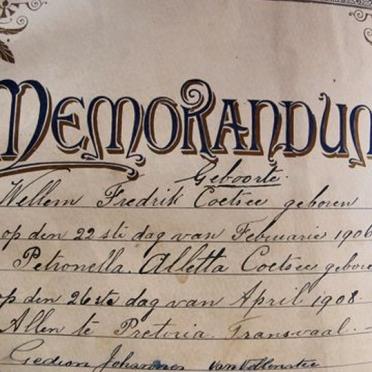 MEMORANDUM
Geboorte.
Willem Fredrik Coetsee geboren
op den 22 ste dag van Februarie 1906
Petronella. Alletta Coetsee gebore
op den 26ste dag van April 1908.
Allen te Pretoria. Transvaal.
Gedion Johannes